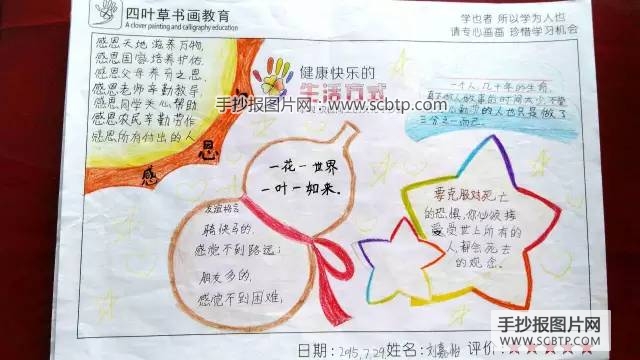 四叶草书画教育
A clover painting and calligraphy education
学也者 所以学为人也
请专心画画 珍惜学习机会
感恩天地滋养万物,
感恩国家培养护佑,
感恩父母养育之恩,
感恩老师辛勤教导,
感恩同学关心帮助
感恩农民辛勤劳作
感恩所有付出的人
感 恩
健康快乐的
生活方式
手抄报图片网:www.scbtp.com
一个人几十年的生命,
真正做人做事的时间
的人也只是做了
三分之一而已。
一花一世界
一叶一如来。
友谊格言
骑快马的,
感觉不到路远;
朋友多的,
感觉不到困难;
要克服对死亡
的恐惧,你必须接
受世上所有的
人都会死去
的观念。
日期:2015,7.29 姓名:刘嘉怡 评价:
手抄报图片网
WWW.SCBTP.COM